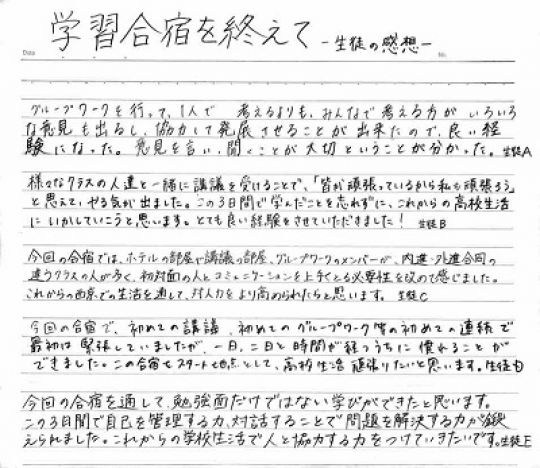 学習合宿を終えて -生徒の感想-
Date
No.
グループワークを行って、1人で 考えるよりも、みんなで考える方が いろいろ
な意見も出るし、協力して発展させることが出来たので、良い経
験になった。意見を言い、聞くことが大切ということが分かった。 生徒A
様々なクラスの人達と一緒に講議を受けることで、「皆が頑張っているから私も頑張ろう」
と思えて、やる気が出ました。この3日間で学んだことを忘れずに、これからの高校生活
にいかしていこうと思います。とても良い経験をさせていただきました! 生徒B
今回の合宿では、ホテルの部屋や講議の部屋、グループワークのメンバーが、内進・外進合同の
違うクラスの人が多く、初対面の人とコミュニケーションを上手くとる必要性を改めて感じました。
これからの西京での生活を通して、対人力をより高められたらと思います。 生徒C
今回の合宿で、初めての講議、初めてのグループワーク等の初めての連続で
最初は緊張していましたが、一日、二日と時間が経つうちに慣れることが
できました。この合宿をスタート地点として、高校生活 頑張りたいと思います。生徒D
今回の合宿を通して、勉強面だけではない学びができたと思います。
この3日間で自己を管理する力、対話することで問題を解決する力が鍛
えられました。これからの学校生活で人と協力する力をつけていきたいです。生徒E